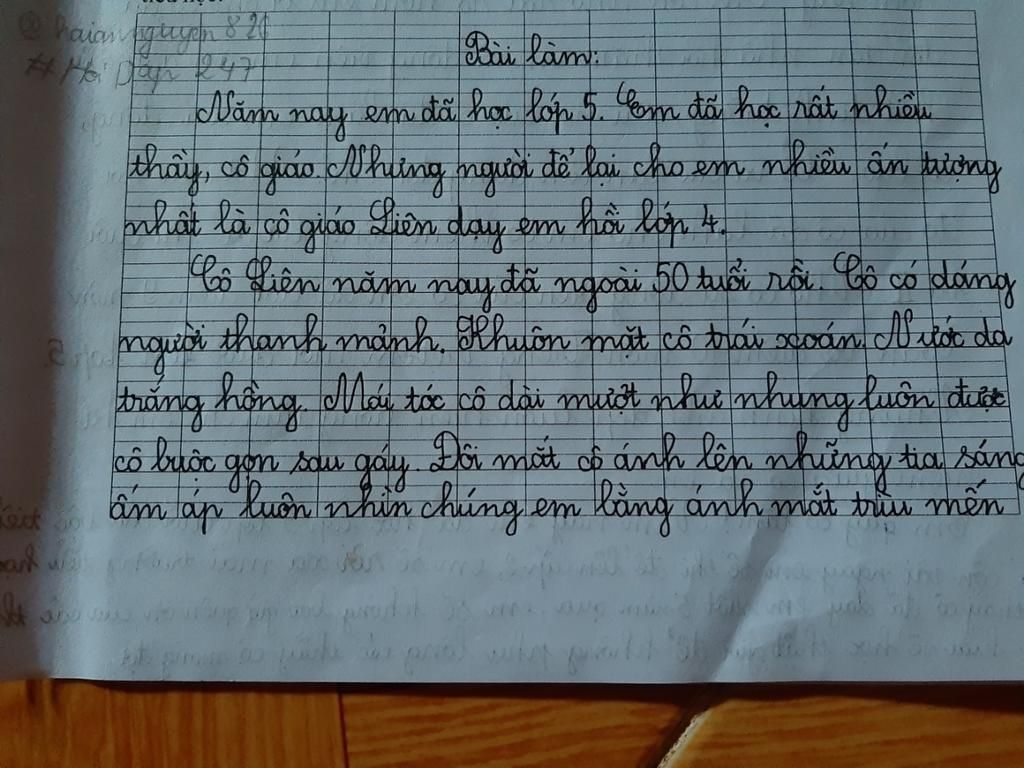 @ haianguyen 820
# Hoi Dap 247
Bài làm:
Năm nay em đã học lớp 5. Em đã học rất nhiều
thầy, cô giáo. Nhưng người để lại cho em nhiều ấn tượng
nhất là cô giáo Liên dạy em hồi lớp 4.
Cô Liên năm nay đã ngoài 50 tuổi rồi. Cô có dáng
người thanh mảnh. Khuôn mặt cô trái xoán. Nước da
trắng hồng. Mái tóc cô dài mượt như nhung luôn được
cô buộc gọn sau gáy. Đôi mắt cô ánh lên những tia sáng
ấm áp luôn nhìn chúng em bằng ánh mắt trìu mến